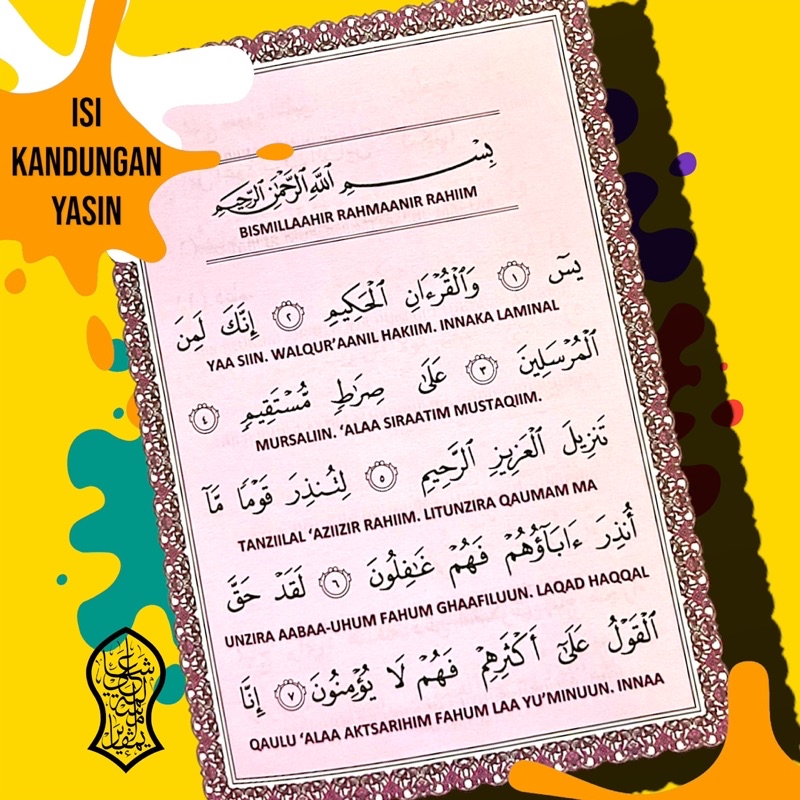 ISI
KANDUNGAN
YASIN
بِسْمِ اللَّهِ الرَّحْمَٰنِ الرَّحِيمِ
BISMILLAAHIR RAHMAANIR RAHIIM
يسٓ ١ وَالْقُرْءَانِ الْحَكِيمِ ٢ إِنَّكَ لَمِنَ
YAA SIIN. WALQUR’AANIL HAKIIM. INNAKA LAMINAL
الْمُرْسَلِينَ ٣ عَلَىٰ صِرَٰطٍ مُّسْتَقِيمٍ ٤
MURSALIIN. ‘ALAA SIRAATIM MUSTAQIIM.
تَنزِيلَ الْعَزِيزِ الرَّحِيمِ ٥ لِتُنذِرَ قَوْمًا مَّآ
TANZIILAL ‘AZIIZIR RAHIIM. LITUNZIRA QAUMAM MA
أُنذِرَ ءَابَآؤُهُمْ فَهُمْ غَٰفِلُونَ ٦ لَقَدْ حَقَّ
UNZIRA AABAA-UHUM FAHUM GHAAFILUUN. LAQAD HAQQAL
الْقَوْلُ عَلَىٰٓ أَكْثَرِهِمْ فَهُمْ لَا يُؤْمِنُونَ ٧ إِنَّا
QAULU ‘ALAA AKTSARIHIM FAHUM LAA YU’MINUUN. INNAA